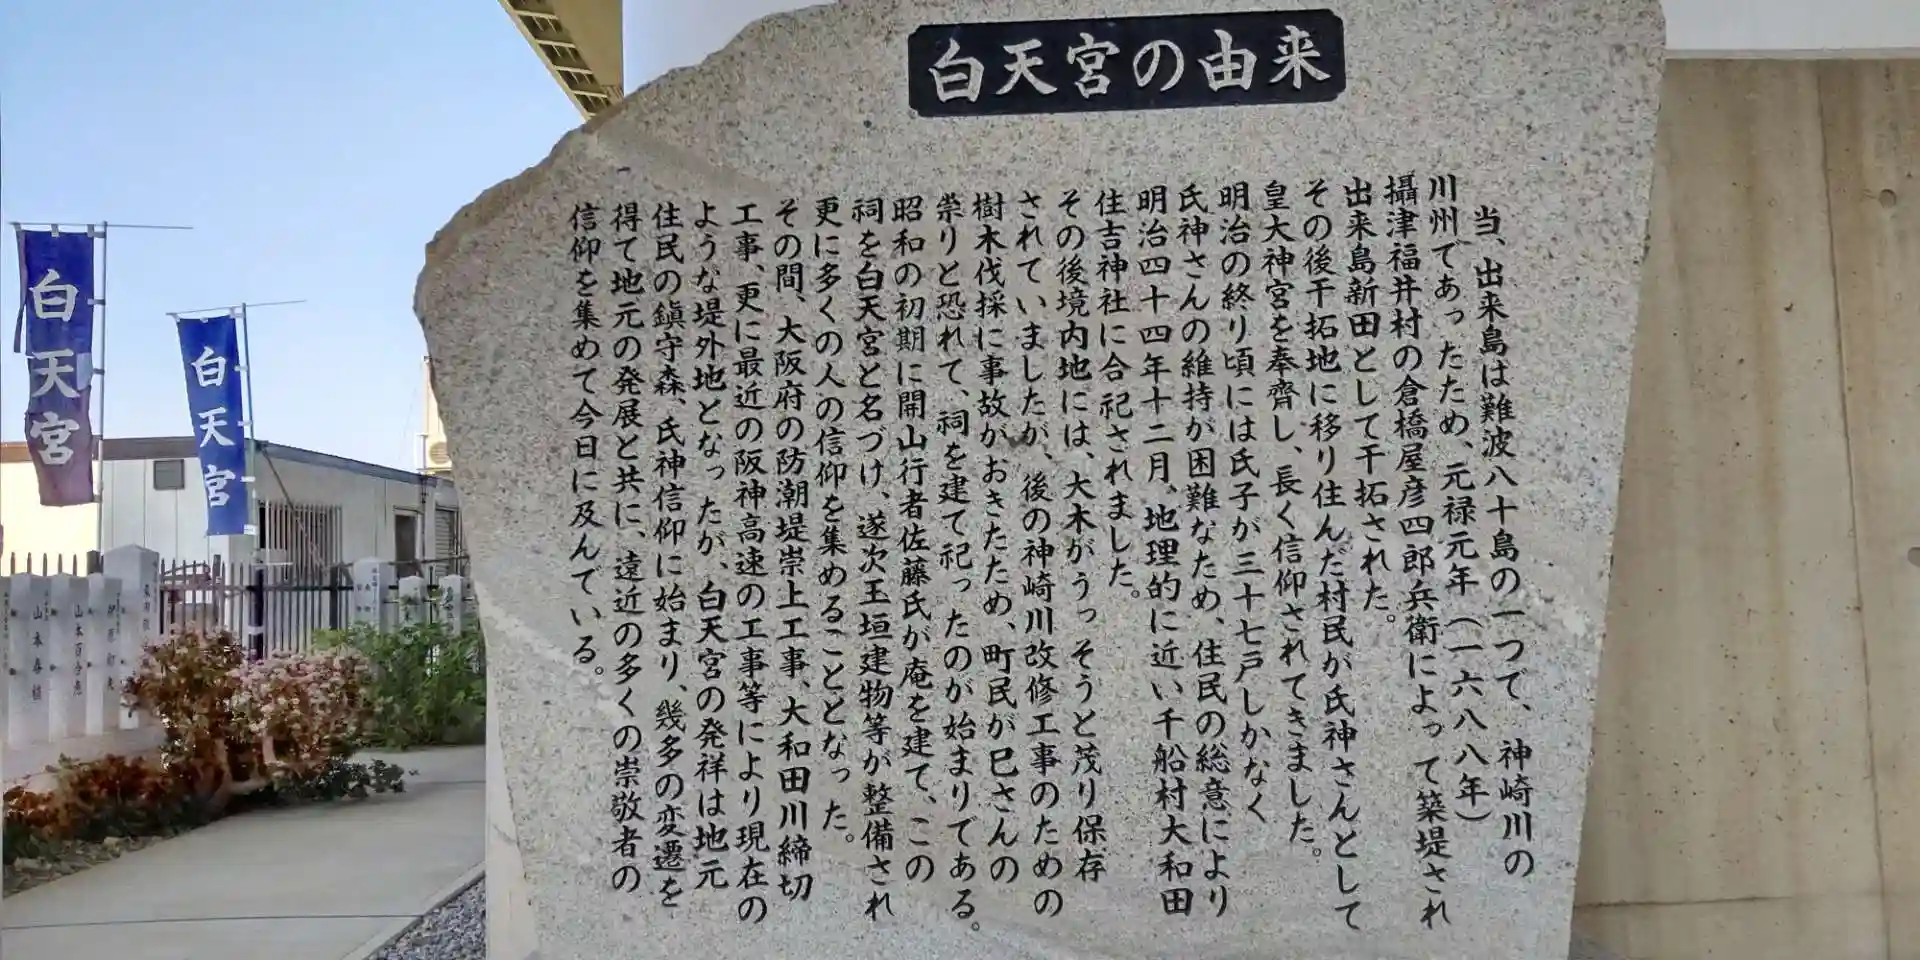 白天宮の由来
当、出来島は難波八十島の一つで、神崎川の
川州であったため、元禄元年(一六八八年)
攝津福井村の倉橋屋彦四郎兵衛によって築堤され
出来島新田として干拓された。
その後干拓地に移り住んだ村民が氏神さんとして
皇大神宮を奉齊し、長く信仰されてきました。
明治の終り頃には氏子が三十七戸しかなく
氏神さんの維持が困難なため、住民の総意により
明治四十四年十二月、地理的に近い千船村大和田
住吉神社に合祀されました。
その後境内地には、大木がうっそうと茂り保存
されていましたが、後の神崎川改修工事のための
樹木伐採に事故がおきたため、町民が巳さんの
崇りと恐れて、祠を建て祀ったのが始まりである。
昭和の初期に開山行者佐藤氏が庵を建て、この
祠を白天宮と名づけ、遂次玉垣建物等が整備され
更に多くの人の信仰を集めることとなった。
その間、大阪府の防潮堤崇上工事、大和田川締切
工事、更に最近の阪神高速の工事等により現在の
ような堤外地となったが、白天宮の発祥は地元
住民の鎮守森、氏神信仰に始まり、幾多の変遷を
得て地元の発展と共に、遠近の多くの崇敬者の
信仰を集めて今日に及んでいる。
白天宮
白天宮
山本百合恵
山本春植